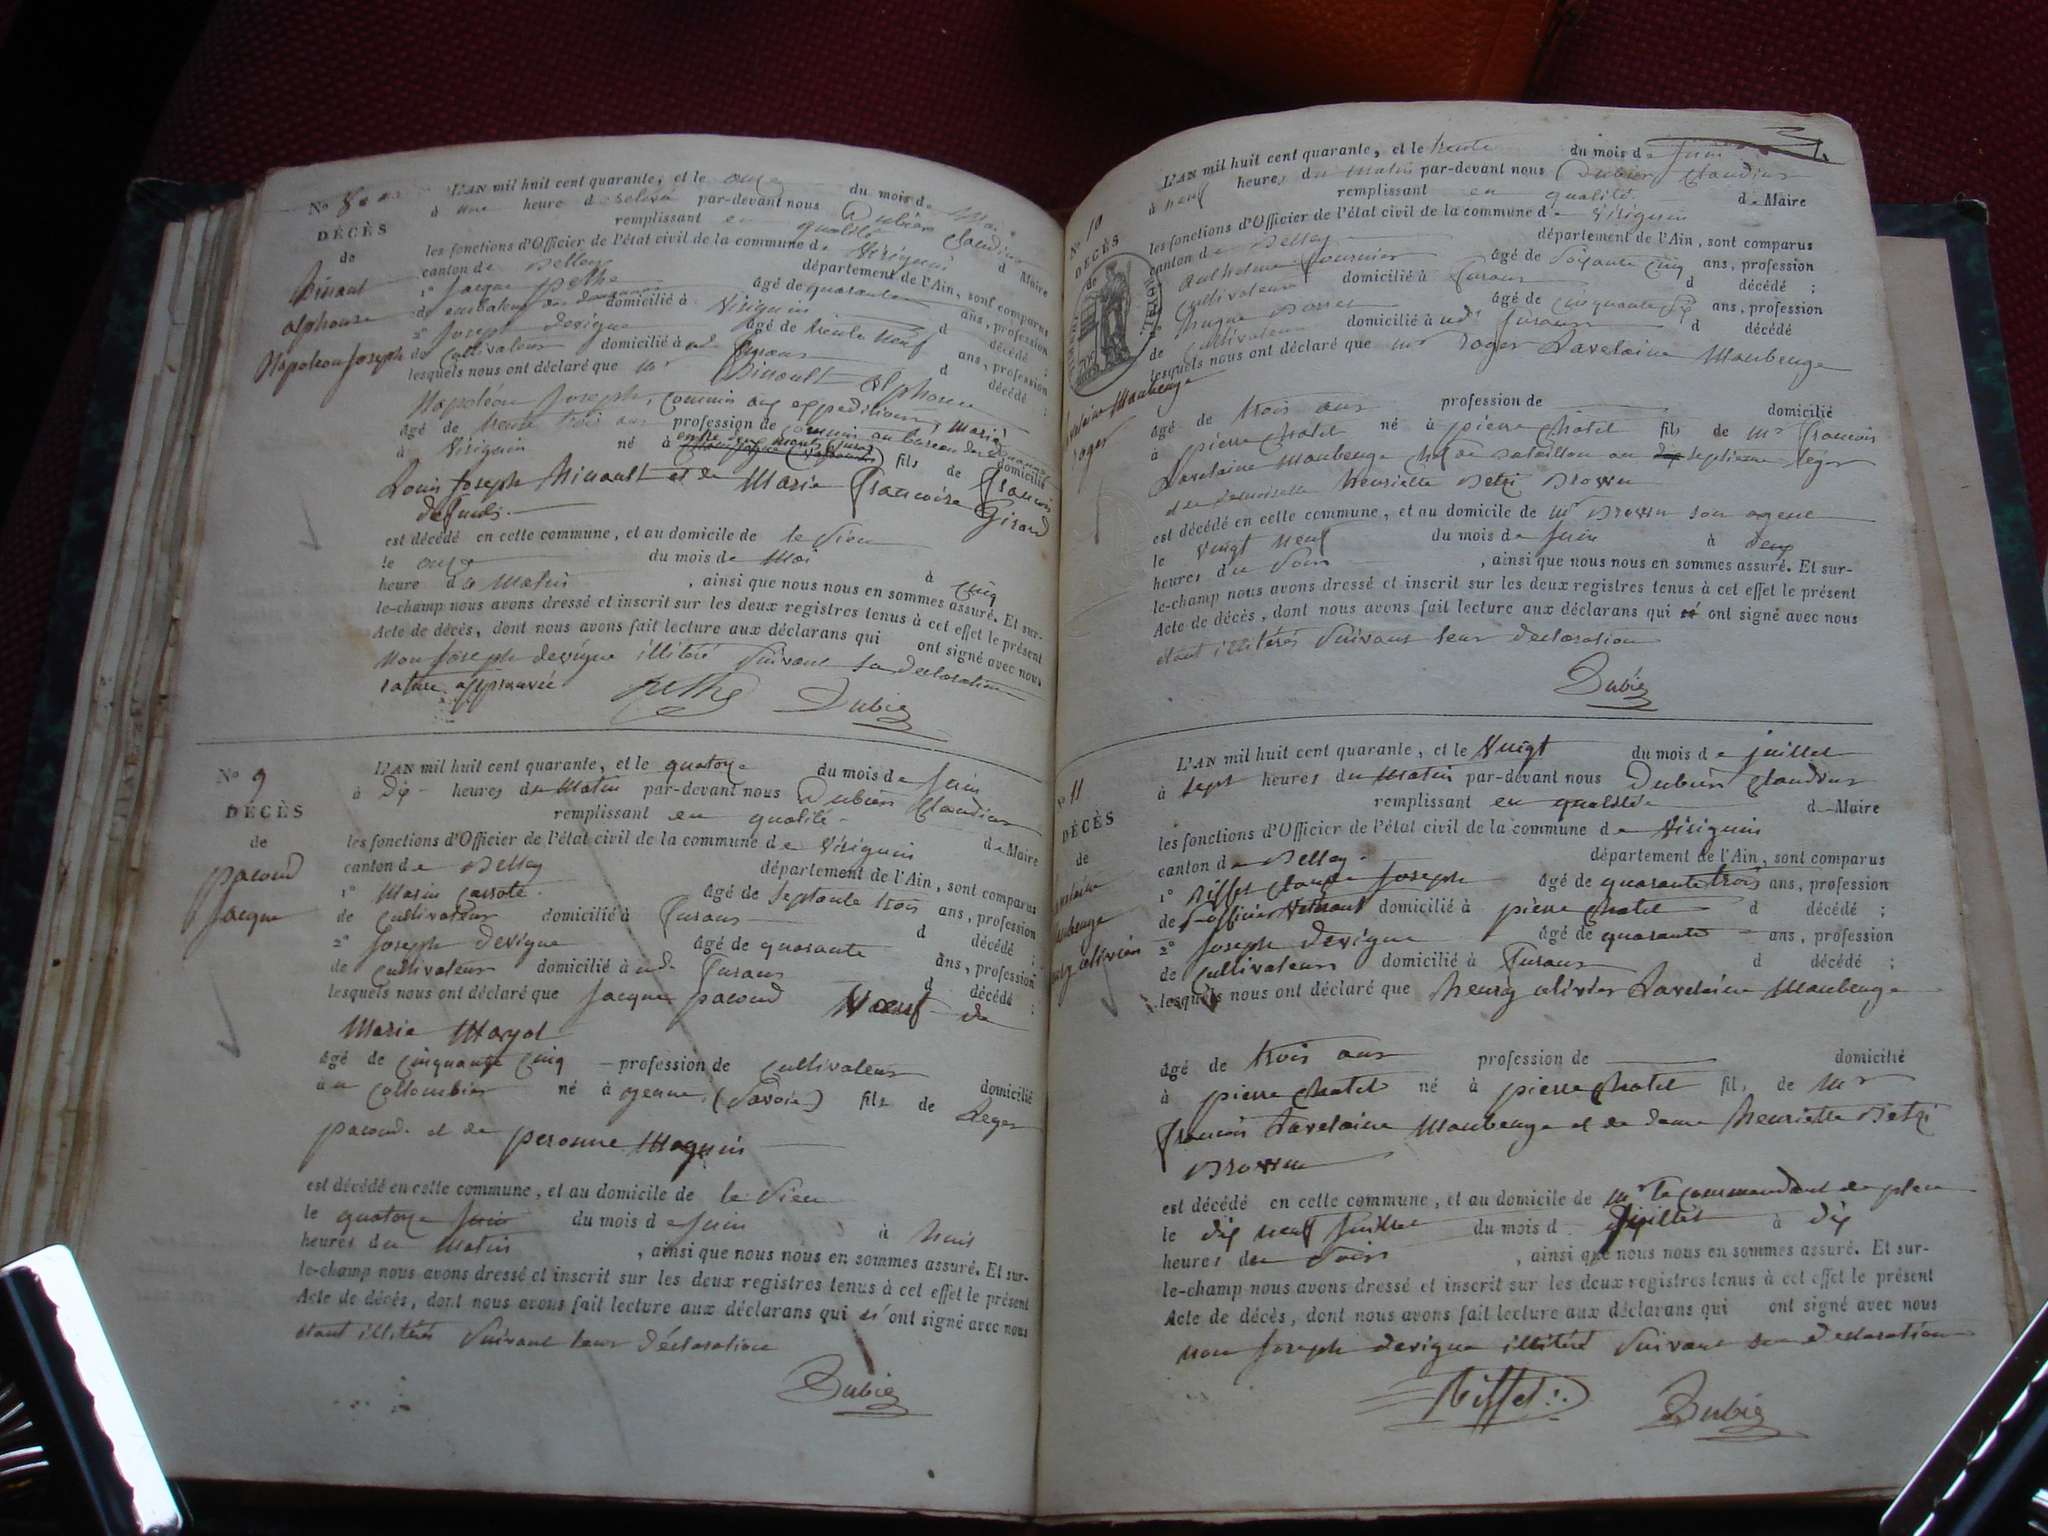 N° 8
DÉCÈS
de
Binault
alphonse
Napoléon Joseph
L'AN mil huit cent quarante, et le onze du mois de Mai
à une heure de relevée par-devant nous Dubien Claudius
remplissant en qualité de Maire
les fonctions d'Officier de l'état civil de la commune de Virignin
canton de Belley département de l'Ain, sont comparus
1° Jacque pethe âgé de quarante ans, profession
de domicilié à Virignin d décédé ;
2° Joseph devigne âgé de trente neuf ans, profession
de Cultivateur domicilié à d décédé ;
lesquels nous ont déclaré que mr Binault alphonse
Napoléon Joseph, commis aux expeditions, marié
âgé de trente trois ans profession de commis au bureau des domicilié
à Virignin né à fils de françois
Louis Joseph Binault et de Marie françoise Girard
défunts.
est décédé en cette commune, et au domicile de le Sien
le onze du mois de Mai à cinq
heure du Matin , ainsi que nous nous en sommes assuré. Et sur-
le-champ nous avons dressé et inscrit sur les deux registres tenus à cet effet le présent
Acte de décès, dont nous avons fait lecture aux déclarans qui ont signé avec nous
non Joseph devigne illitéré Suivant sa declaration
rature approuvée
pethe Dubien
N° 9
DÉCÈS
de
pacoud
Jacque
L'AN mil huit cent quarante, et le quatorze du mois de Juin
à Dix heures du Matin par-devant nous Dubien Claudius
remplissant en qualité de Maire
les fonctions d'Officier de l'état civil de la commune de Virignin
canton de Belley département de l'Ain, sont comparus
1° Marin âgé de Septante trois ans, profession
de Cultivateur domicilié à furans d décédé ;
2° Joseph devigne âgé de quarante ans, profession
de Cultivateur domicilié à ud. furans d décédé ;
lesquels nous ont déclaré que Jacque pacoud Voeuf de
Marie Mayol
âgé de Cinquante Cinq profession de Cultivateur domicilié
à u Collombier né à yenne (Savoie) fils de Leger
pacoud et de peronne Maguin
est décédé en cette commune, et au domicile de le Sien
le quatorze Juin du mois de Juin à trois
heures du Matin , ainsi que nous nous en sommes assuré. Et sur-
le-champ nous avons dressé et inscrit sur les deux registres tenus à cet effet le présent
Acte de décès, dont nous avons fait lecture aux déclarans qui n'ont signé avec nous
étant illitérés Suivant leur déclaration
Dubien
N° 10
DÉCÈS
de
Lavelaine Maubeuge
roger
L'AN mil huit cent quarante, et le trente du mois de Juin
à neuf heures du Matin par-devant nous Dubien Claudius
remplissant en qualité de Maire
les fonctions d'Officier de l'état civil de la commune de Virignin
canton de Belley département de l'Ain, sont comparus
1° anthelme fournier âgé de Soixante Cinq ans, profession
de Cultivateur domicilié à furans d décédé ;
2° hugue âgé de Cinquante Six ans, profession
de Cultivateur domicilié à ud. furans d décédé
lesquels nous ont déclaré que mr roger Lavelaine Maubeuge
âgé de trois ans profession de domicilié
à pierre Chatel né à pierre Chatel fils de mr francois
Lavelaine Maubeuge chef de Bataillon au septieme Léger
et de demoiselle henriette Betzi Brown
est décédé en cette commune, et au domicile de mr Brown son
le Vingt neuf du mois de Juin à deux
heures du Soir , ainsi que nous nous en sommes assuré. Et sur-
le-champ nous avons dressé et inscrit sur les deux registres tenus à cet effet le présent
Acte de décès, dont nous avons fait lecture aux déclarans qui n'ont signé avec nous
étant illitérés Suivant leur declaration
Dubien
N° 11
DÉCÈS
de
Lavelaine
Maubeuge
henry olivier
L'AN mil huit cent quarante, et le Vingt du mois de juillet
à sept heures du Matin par-devant nous Dubien Claudius
remplissant en qualité de Maire
les fonctions d'Officier de l'état civil de la commune de Virignin
canton de Belley. département de l'Ain, sont comparus
1° Riffet Claude Joseph âgé de quarante trois ans, profession
de domicilié à pierre Chatel d décédé ;
2° Joseph devigne âgé de quarante ans, profession
de Cultivateur domicilié à furans d décédé ;
lesquels nous ont déclaré que henry olivier Lavelaine Maubeuge
âgé de trois ans profession de domicilié
à pierre Chatel né à pierre Chatel fils de mr
francois Lavelaine Maubeuge et de dame henriette Betzi
Brown
est décédé en cette commune, et au domicile de mr le commandant de place
le dix neuf Juillet du mois d Juillet à dix
heures du Soir , ainsi que nous nous en sommes assuré. Et sur-
le-champ nous avons dressé et inscrit sur les deux registres tenus à cet effet le présent
Acte de décès, dont nous avons fait lecture aux déclarans qui ont signé avec nous
non Joseph devigne illitéré Suivant sa declaration
Riffet Dubien